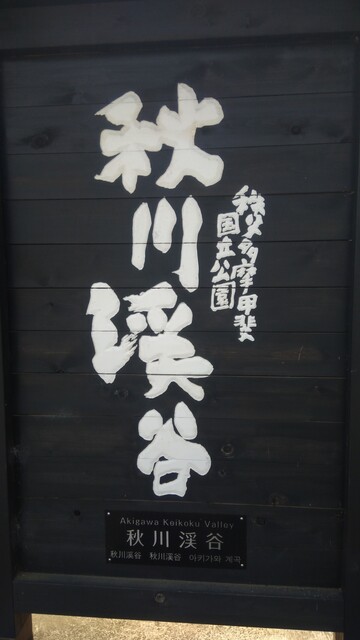 秩父多摩甲斐
国立公園
秋川渓谷
Akigawa Keikoku Valley
秋川渓谷
秋川溪谷 秋川溪谷 아키가와 계곡